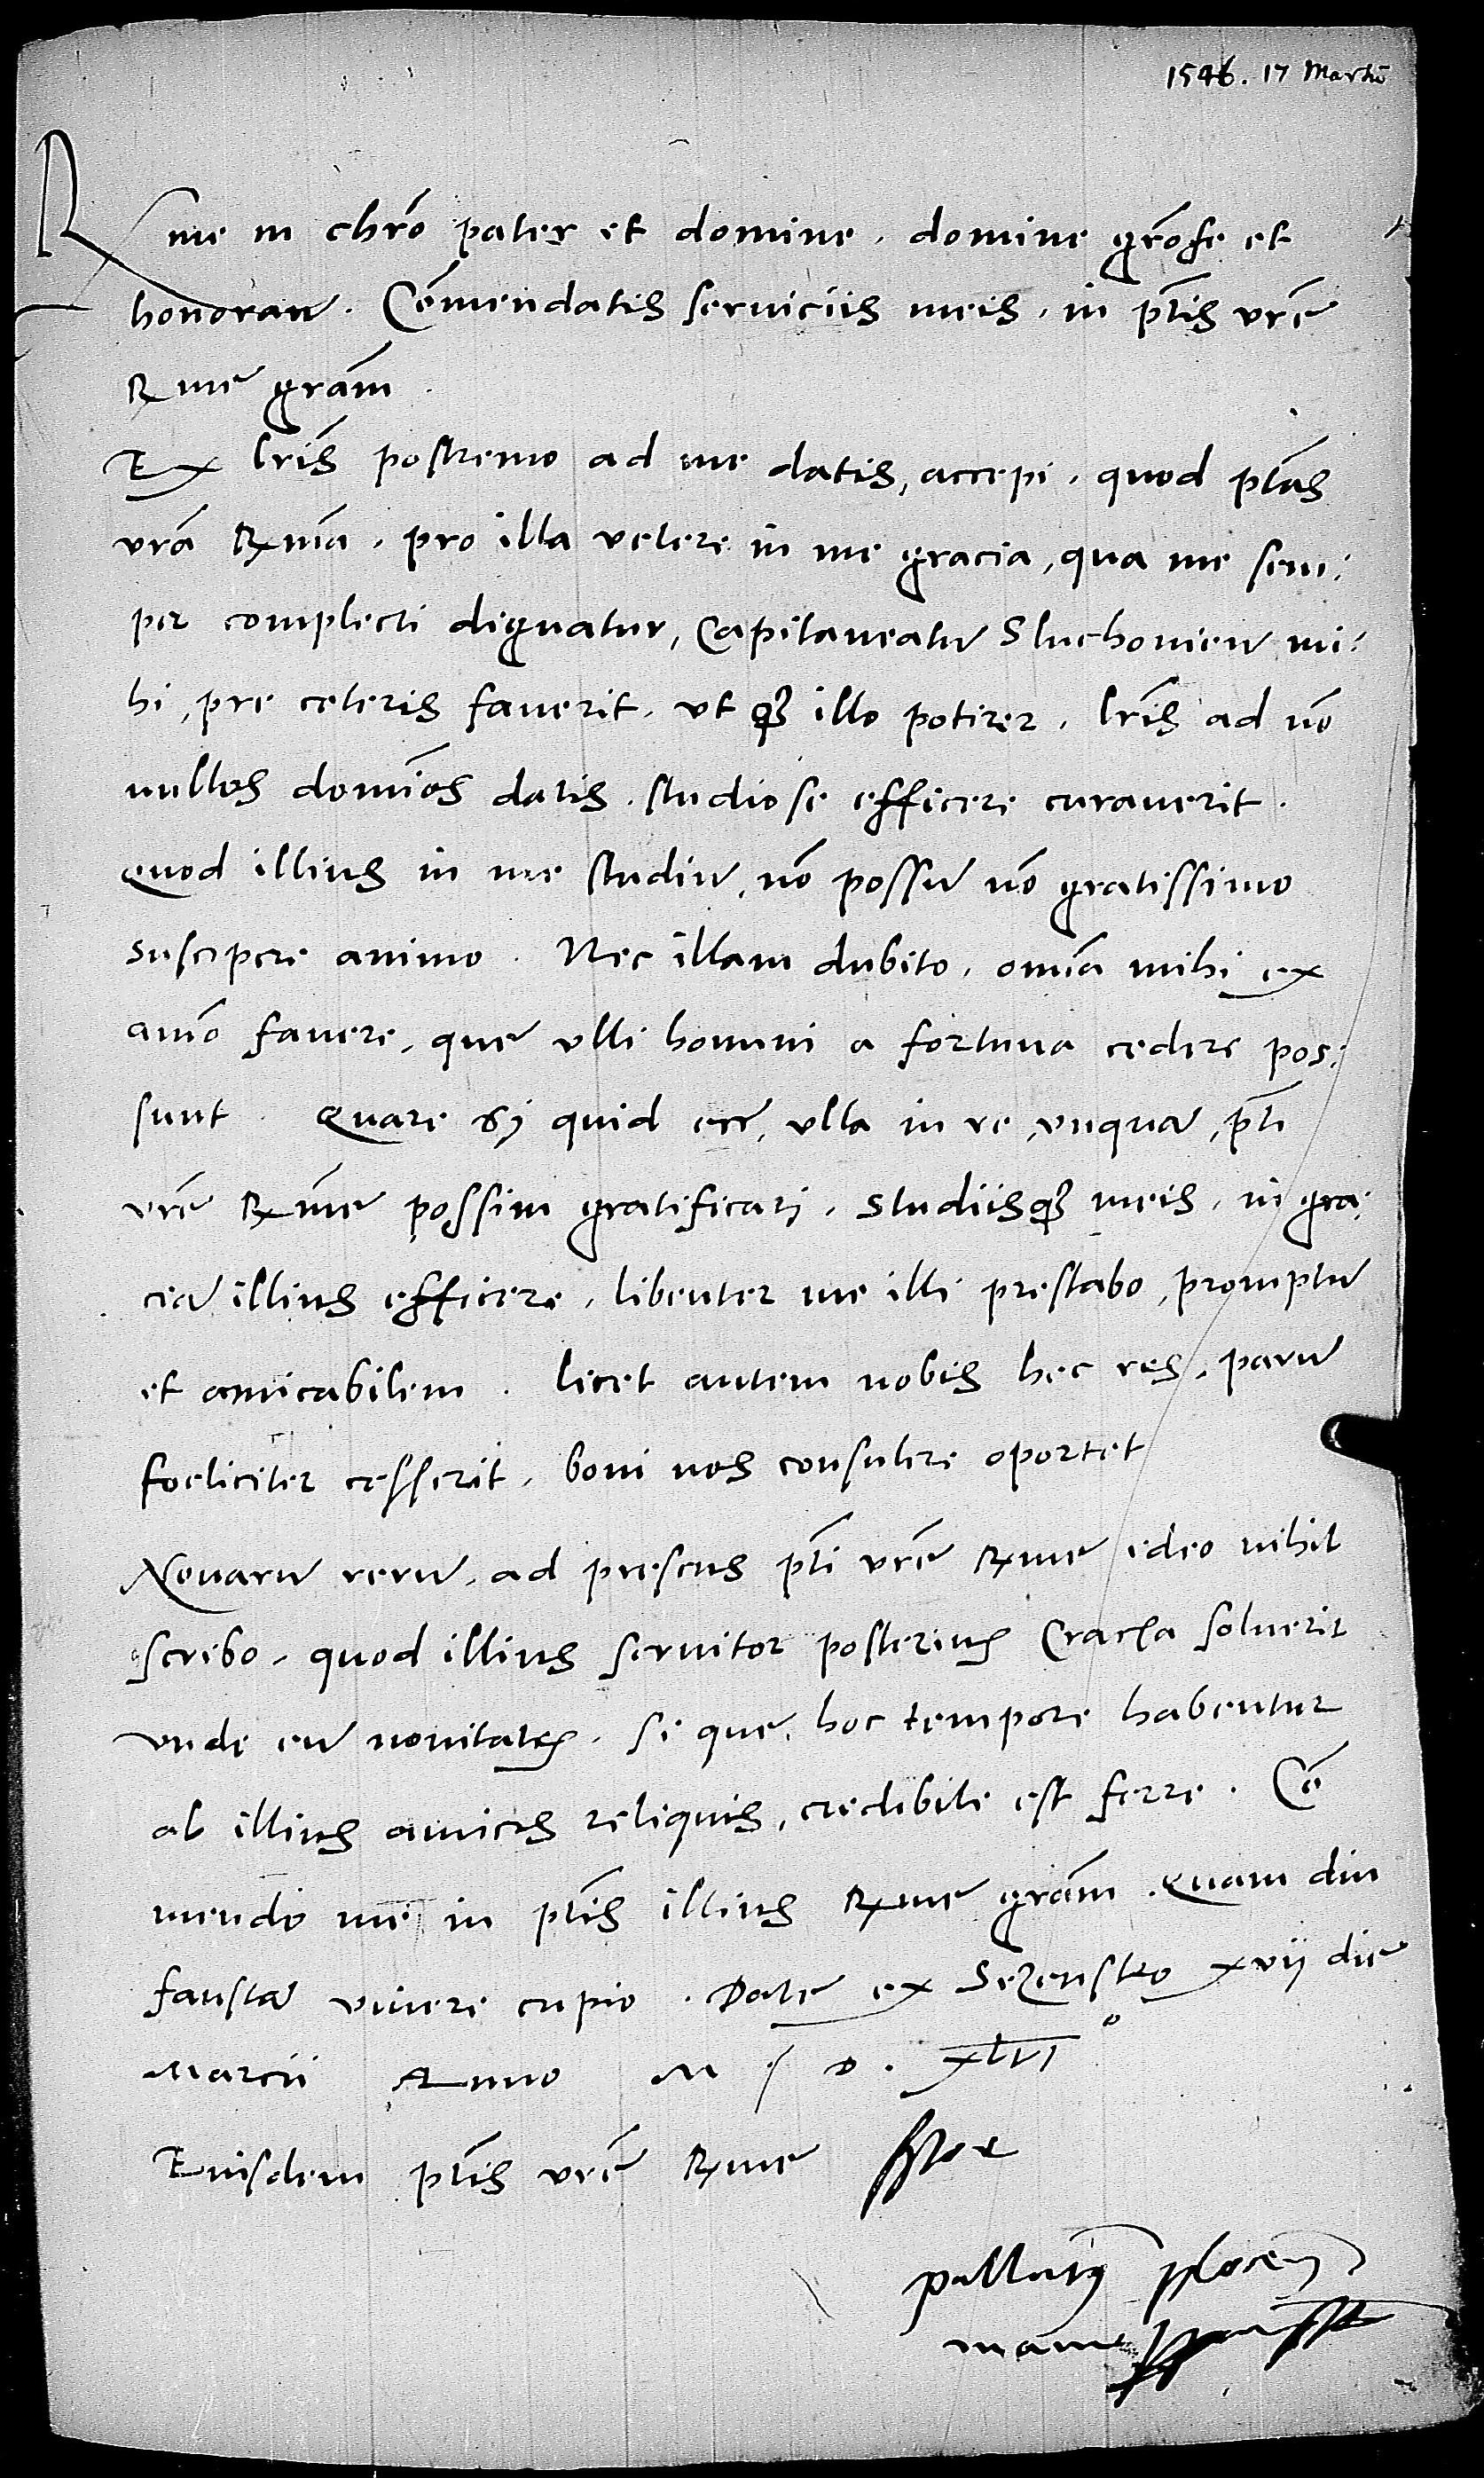 1546. 17 Martii
Rme in chro pater et domine. domine grose et
honoran. Comendatis seruiciis meis, in ptis vre
Rme gram.
Ex lris postremo ad me datis, accepi, quod ptas
vra Rma, pro illa vetere in me gracia, qua me sem:
per complecti dignatur, Capitaneatu Sluchouien mi:
hi, pre ceteris fauerit, vt qz illo potirer, lris ad no
nullos domios datis, studiose efficere curauerit.
Quod illius in me studiu, no possu no gratissimo
suscipere animo. Nec illam dubito, omia mihi ex
aio fauere, que vlli homini a fortuna cedere pos:
sunt. Quare si quid ecc, vlla in re, vnqua, pti
vre Rme possim gratificari, studiisqz meis, in gra:
cia illius efficere, libenter me illi prestabo, promptu
et amicabilem. Licet autem nobis hec res, paru
foeliciter cesserit, boni nos consulere oportet
Nouaru reru, ad presens pti vre Rme ideo nihil
scribo, quod illius seruitor posterius Cracia soluerit
vnde eu nouitates, si que, hoc tempore habentur
ab illius amicis reliquis, credibile est ferre. Co
mendo me in ptis illius Rme gram. Quam diu
fausta viuere cupio. Date ex Sezensko xvij die
Marcii Anno M D. XLVI°
Eiusdem ptis vre Rme
pallatinus plocen
manu